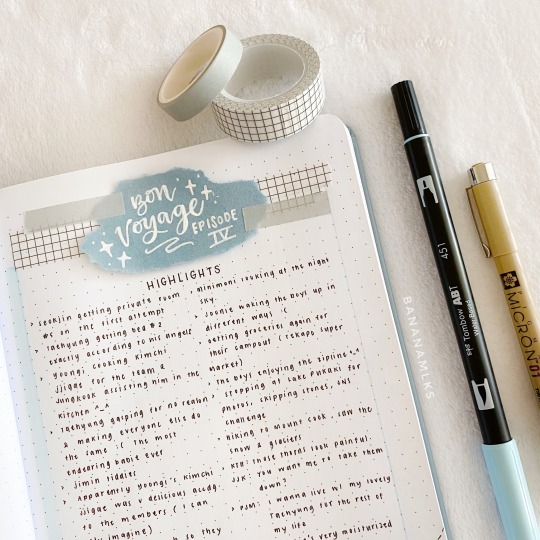 BON
VOYAGE
EPISODE
IV
HIGHLIGHTS
seokjin getting private room
#5 on the first attempt
taehyung getting bed #2
exactly according to his angels
yoongi cooking kimchi
jjigae for the team &
jungkook assisting him in the
kitchen ^_^
taehyung gasping for no reason
& making everyone else do
the same :( the most
endearing babie ever
jimin tiddies
apparently yoongi's kimchi
jjigae was v delicious accdg.
to the members ( i can
imagine)
so they
minimoni looking at the night
sky.
joonie waking the boys up in
different ways :(
getting groceries again for
their campout (tekapo super
market)
the boys enjoying the zipline
stopping at lake pukaki for
photos, skipping stones, ons
challenge
hiking to mount cook, saw the
snow & glaciers
KTH: those thorns look painful.
JJK: you want me to take them
down?
PJM: i wanna live w/ my lovely
taehyung for the rest of
my life
very moisturized
BANANAMLKS
451
Tombow ABT
MICRON 01